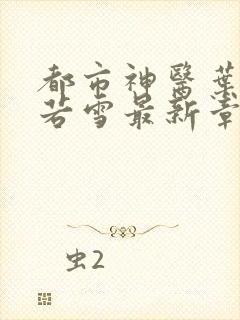 都市神醫葉
若雪最新章
虫2